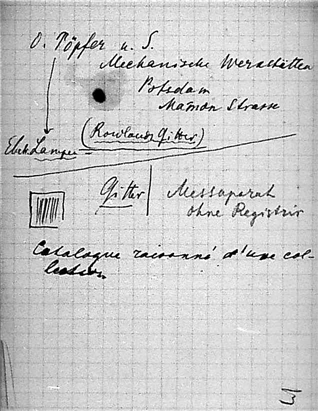 O. Töpfer u. S.
Mechanische Werkstätten
Potsdam
Mamon Strasse
(Rowlands Gitter)
Elek Lampe
Gitter
Messaparat
ohne Registrir
Catalogue raisonné d'une col-
lection
3